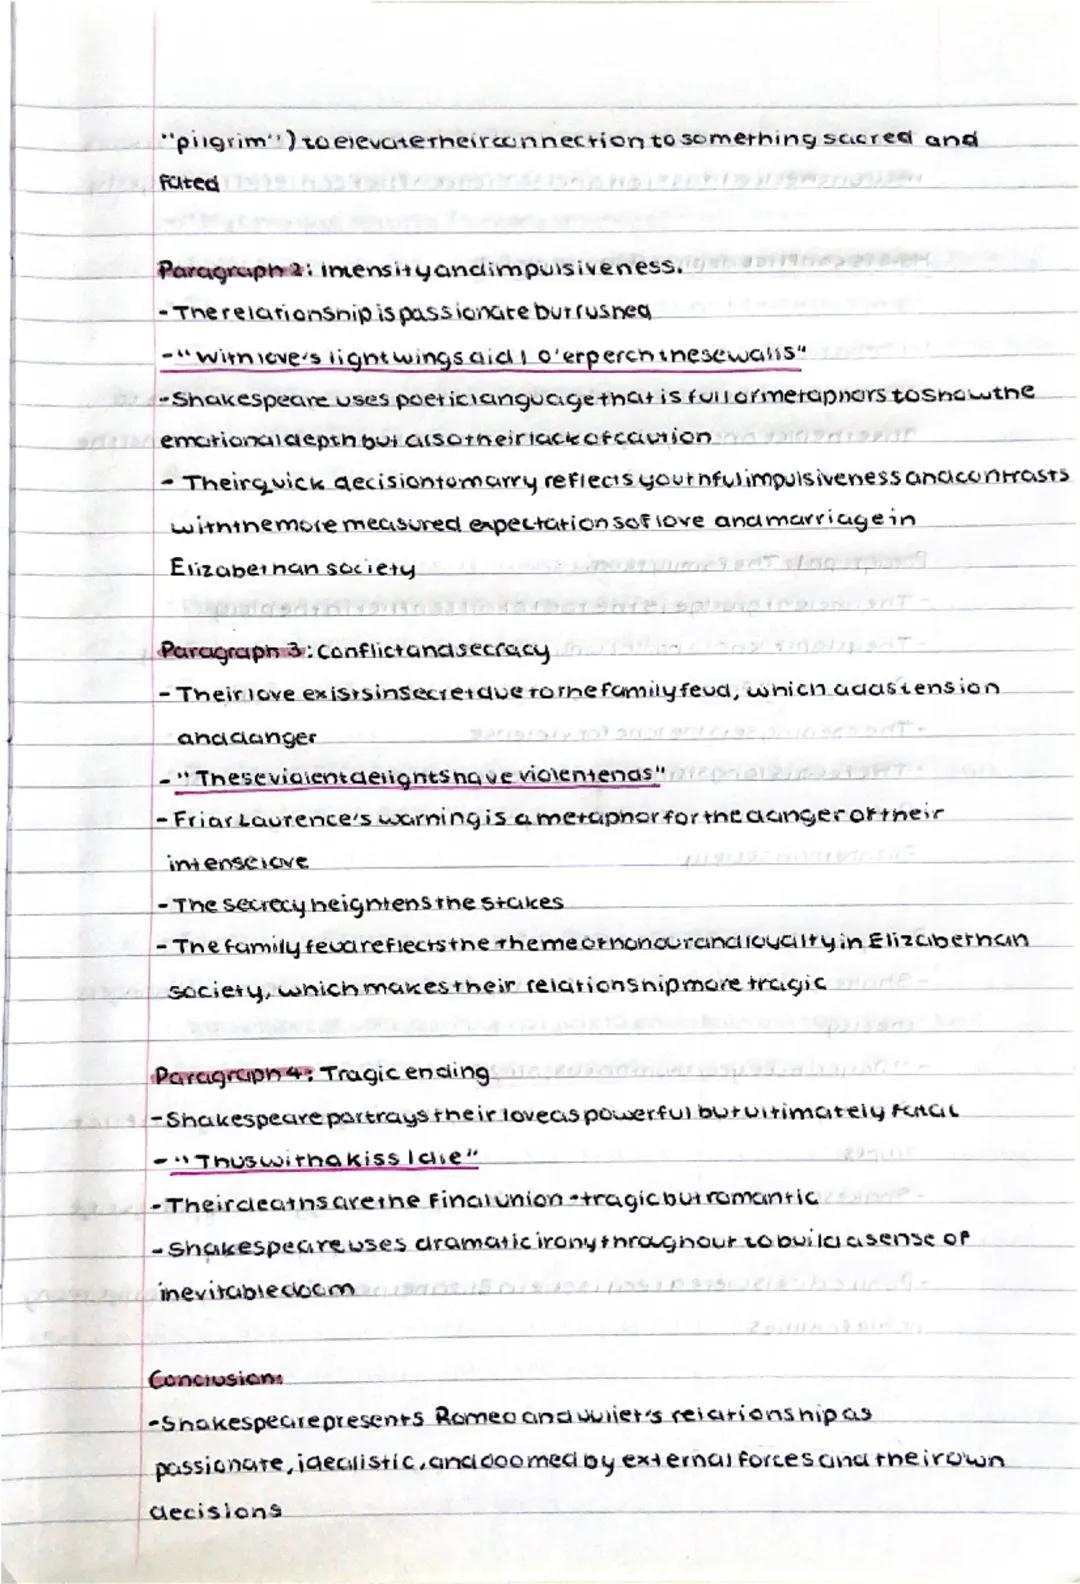 "pilgrim") to elevate their connection to something sacred and
fated
Paragraph 2: intensity and impulsiveness.
- The relationship is passionate but rushed
- "With love's light wings did I o'erperch these walls"
- Shakespeare uses poetic language that is full of metaphors to show the
emotional depth but also their lack of caution
- Their quick decision to marry reflects youthful impulsiveness and contrasts
with the more measured expectations of love and marriage in
Elizabethan society
Paragraph 3: Conflict and secracy
- Their love exists in secret due to the family feud, which adds tension
and danger
- "These violent delights have violent ends"
- Friar Laurence's warning is a metaphor for the danger of their
intense love
- The secrecy heightens the stakes
- The family feud reflects the theme of honour and loyalty in Elizabethan
society, which makes their relationship more tragic
Paragraph 4: Tragic ending
- Shakespeare portrays their love as powerful but ultimately fatal
- "Thus with a kiss I die"
- Their deaths are the final union - tragic but romantic
- Shakespeare uses dramatic irony throughout to build a sense of
inevitable doom
Conclusion:
- Shakespeare presents Romeo and Juliet's relationship as
passionate, idealistic, and doomed by external forces and their own
decisions